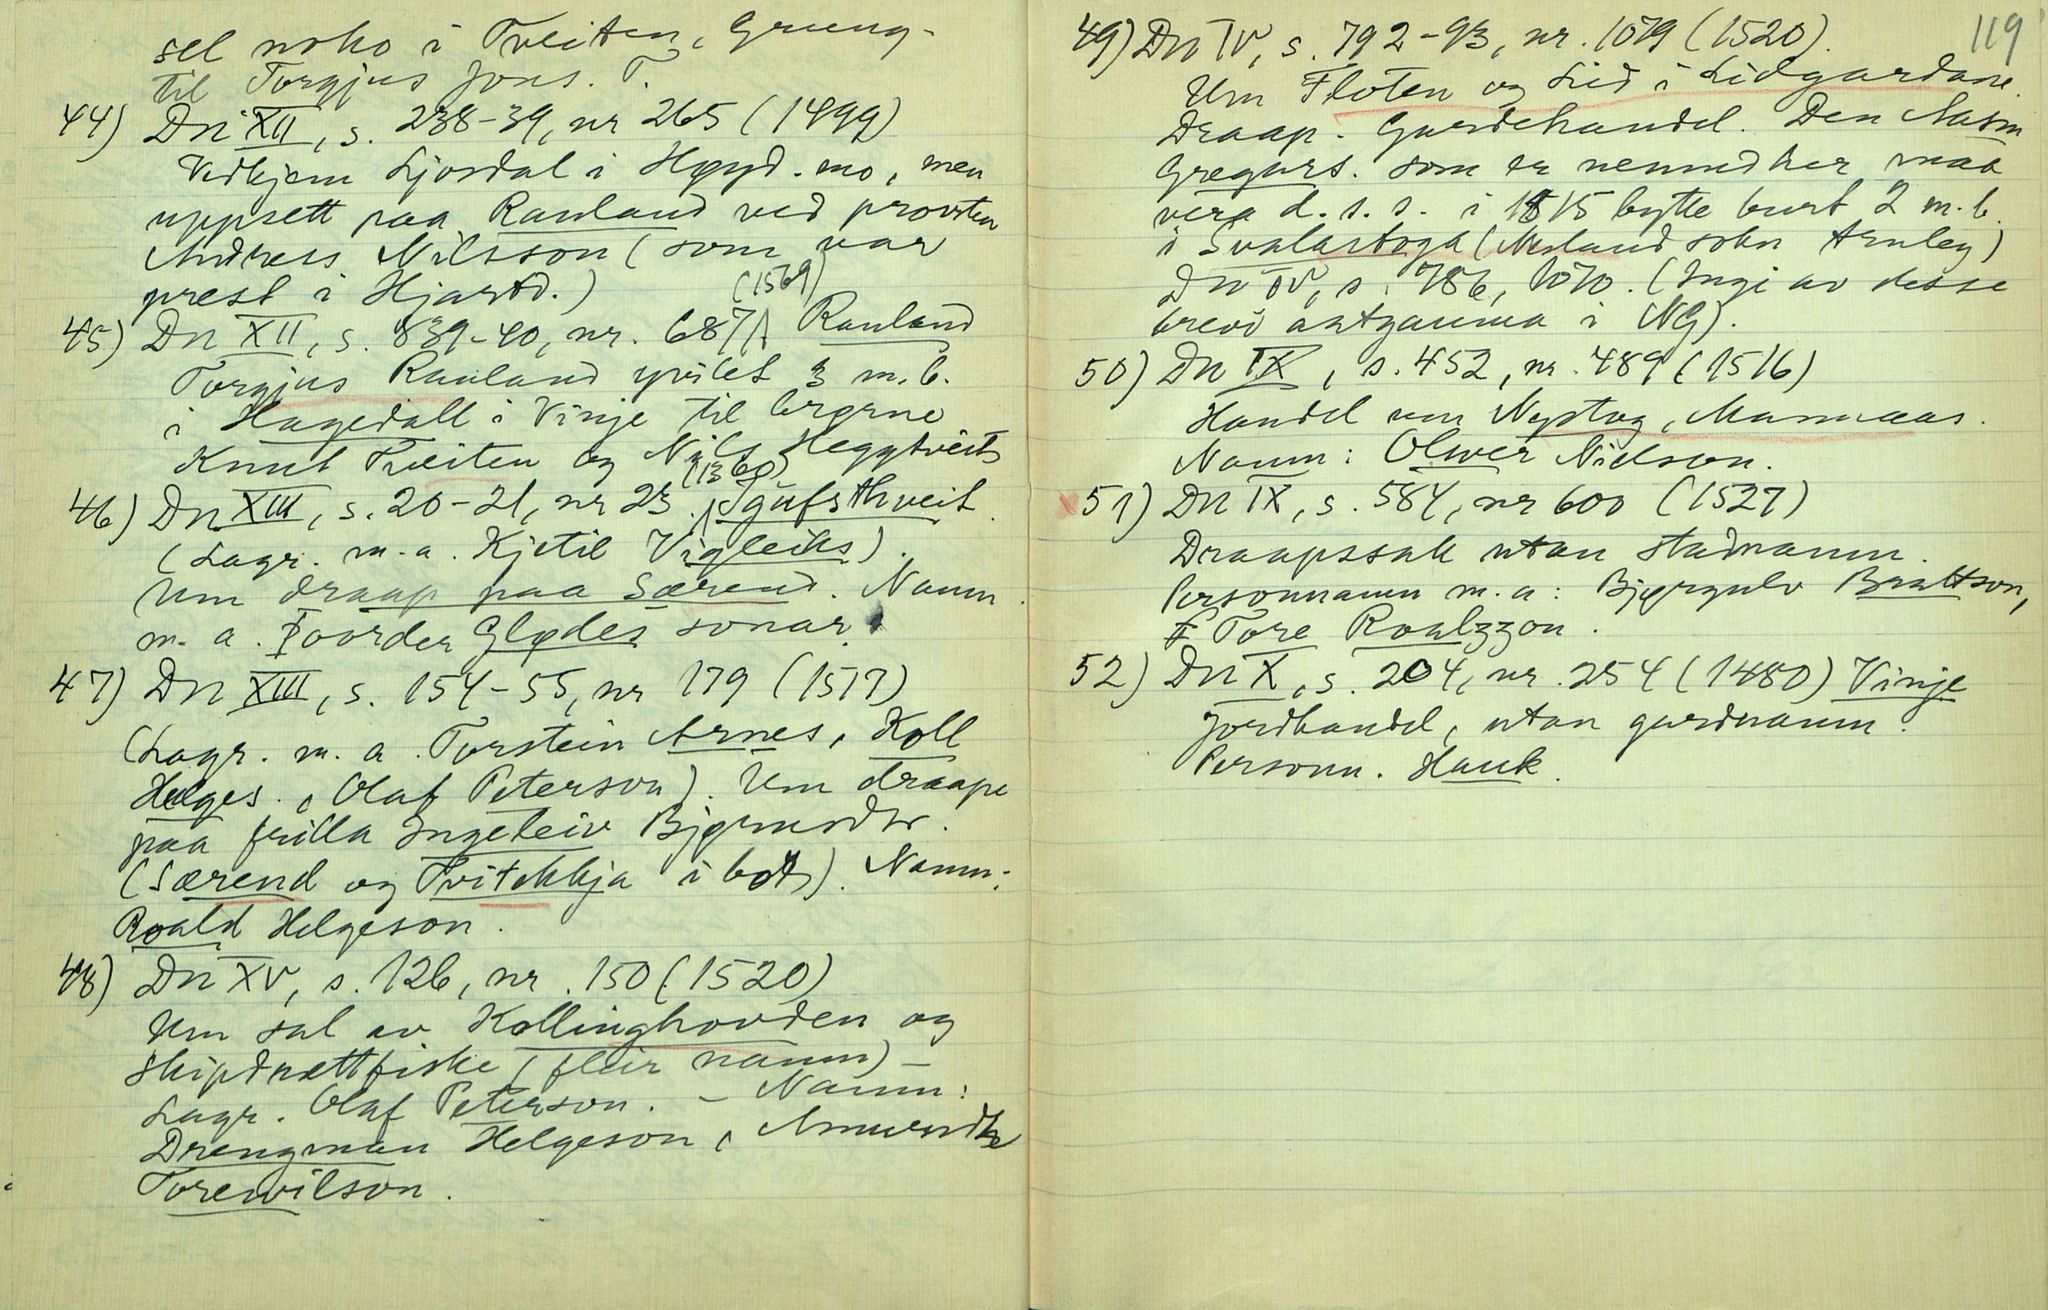 sel noko i Tveiten, Grung-
til Torgjus Jons. T.
44) Dn XII, s. 238-39, nr 265 (1499)
Vedkjem Ljosdal i Høyd.mo, men
uppsett paa Rauland ved provsten
Andress Nilsson (som var
prest i Hjartd.)
(1569)
45) Dn XII, s. 839-40, nr. 687 Rauland
Torgjus Rauland 3 m.b.
i Hagedall i Vinje til brørne
Knut Tveiten og Nils Heggtveit
(1360)
46) Dn XIII, s. 20-21, nr 23. Igulfsthveit.
(Lagr. m.a. Kjetil Vigleiks).
Um draap paa Særend. Namn
m.a. Þoorder Glødes sonar.
47) Dn XIII, s. 154-55, nr 179 (1517)
(Lagr. m.a. Torstein Arnes, Koll
Helges., Olaf Peterson). Um draape
paa frilla Ingeleiv Bjørnsdtr.
(Særend og Tvitekkja i bot). Namn:
Roald Helgeson.
48) Dn XV, s. 126, nr. 150 (1520)
Um sal av Kollinghovden og
skipdrættfiske (fleir namn) -
Lagr. Olaf Peterson. - Namn:
Drengman Helgeson,
Torewilson.
119
49) Dn IV, s. 792-93, nr. 1079 (1520).
Um Floten og Lid i Lidgardane.
Draap. Gardehandel. Den
Gregars. som er nemnd her maa
vera d.s.s. i 1515 bytte burt 2 m.b.
i Svalastoga (Mæland sokn Arnlag)
Dn IV, s. 786, 1070. (Ingi av desse
brevi antgauma i NG).
50) Dn IX, s. 452, nr. 489 (1516)
Handel um Nystog, Mannaas.
Namn: Olwer Nielson.
51) Dn IX, s. 584, nr 600 (1527)
Draapssak utan stadnamn.
Personnamn m.a: Bjørgulv Brattson,
Tore Roalzzon.
52) Dn X, s. 204, nr. 254 (1480) Vinje
Jordhandel, utan gardnamn.
Personn. Hauk.